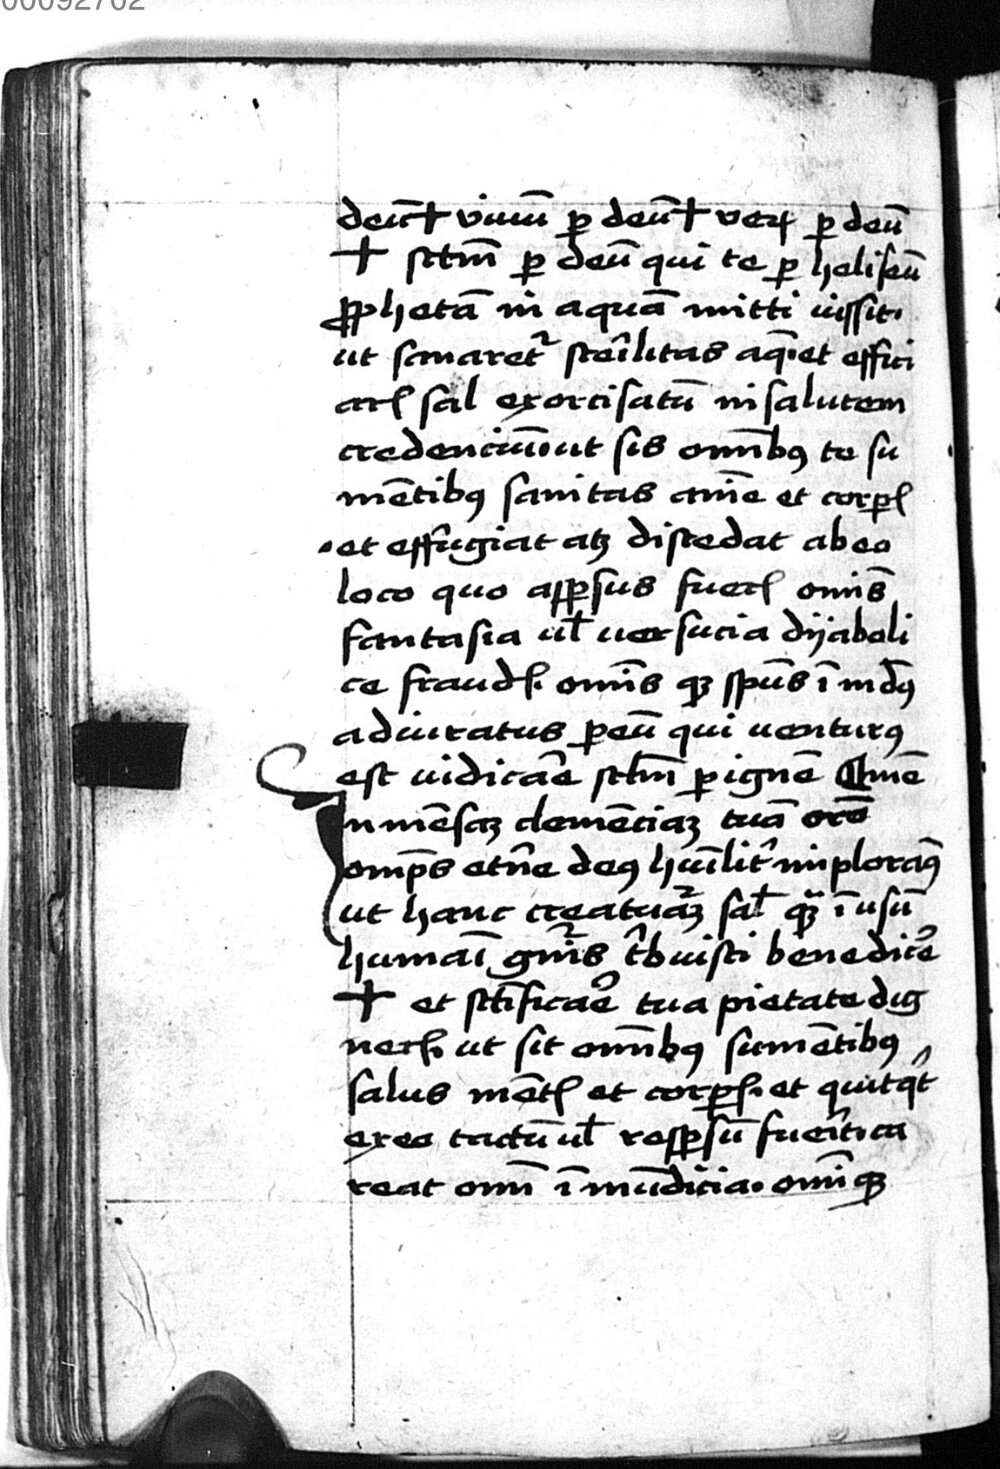 00092702
deū✝ viuū ꝑ deū✝ verꝫ ꝑ deū
✝ sctm̄ ꝑ deū qui te ꝑ heliseū
ꝓphetā in aquā mitti iussit·
ut sanaret᷑ steīlitas aq̄·et effici
aris sal exorcisatū in salutem
credenciū·ut sis om̄ibꝰ te su
mētibꝰ sanitas aīe et corꝑis
·et effugiat atꝫ discedat ab eo
loco quo aspsus fueris om̄s
fantasia ul̄ uersucia dijaboli
ce fraudis· om̄s qꝫ sp̄us ī mūdꝰ
adiuratus ꝑ eū qui venturꝰ
est iudicāe sclm̄ ꝑ ignē Amē
Inmēsaꝫ clemēciaꝫ tuā orō
omps et̄ne deꝰ hūilit᷑ imploramꝰ
ut hanc creaturaꝫ sal̄ quā ī usū
humāi gn̄is t᷑buisti benedicē
✝ et sct̄ificāe tua pietate dig
neris· ut sit om̄ibꝰ sumētibꝰ
salus mētis et corꝑis· et quitq̄t
ex eo tactū ul̄ respsū fuerit·ca
reat om̄i īmūdicia· om̄iqꝫ